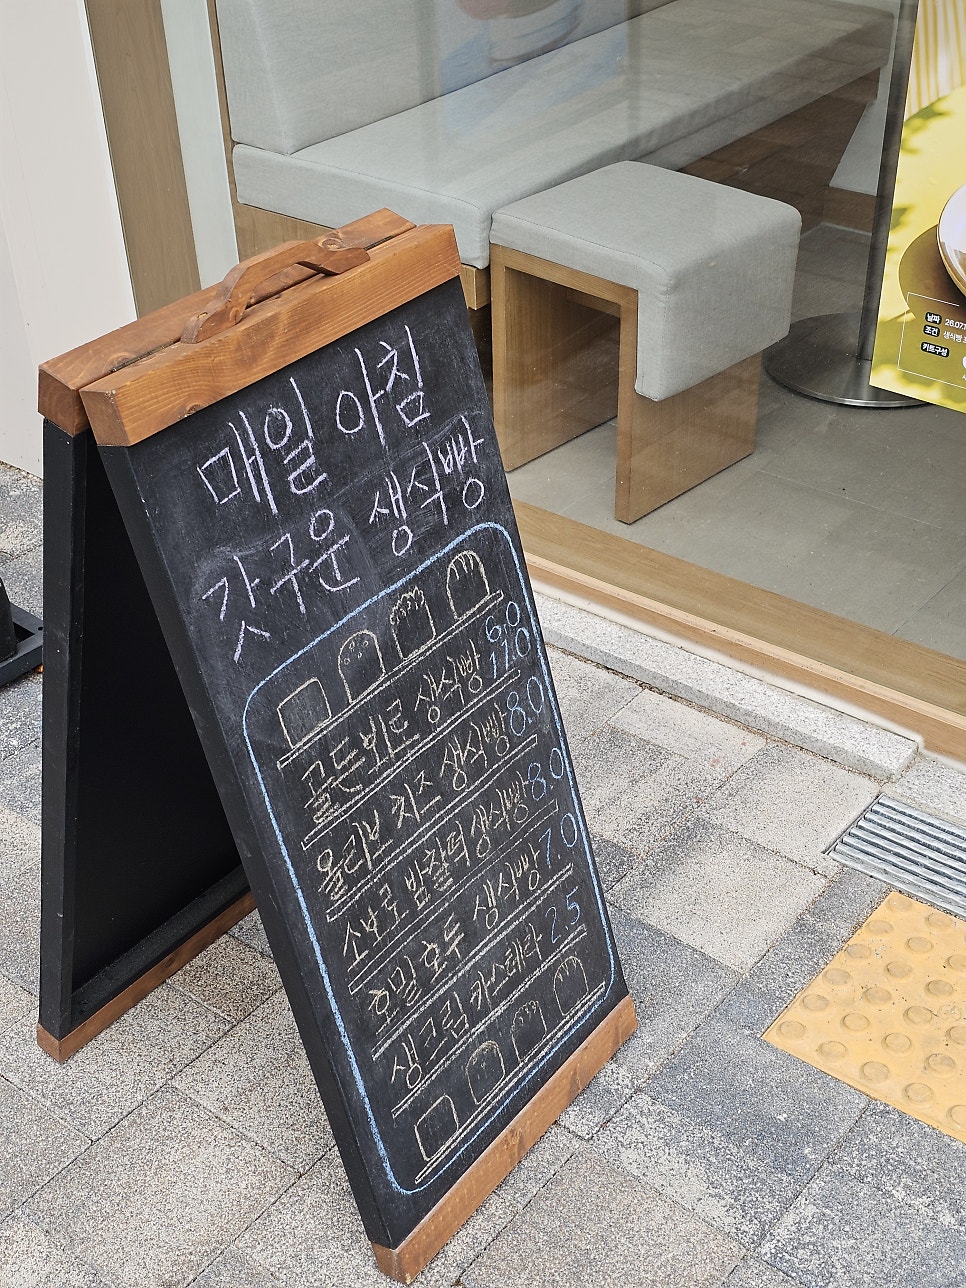 매일 아침
갓구운 생식빵
골든뷔르 생식빵 6.0
11.0
올리브 치즈 생식빵 8.0
소보로 밤찰떡 생식빵 8.0
호밀 호두 생식빵 7.0
생크림 카스테라 2.5
날짜 26.07.
조건 생식빵
키트구성